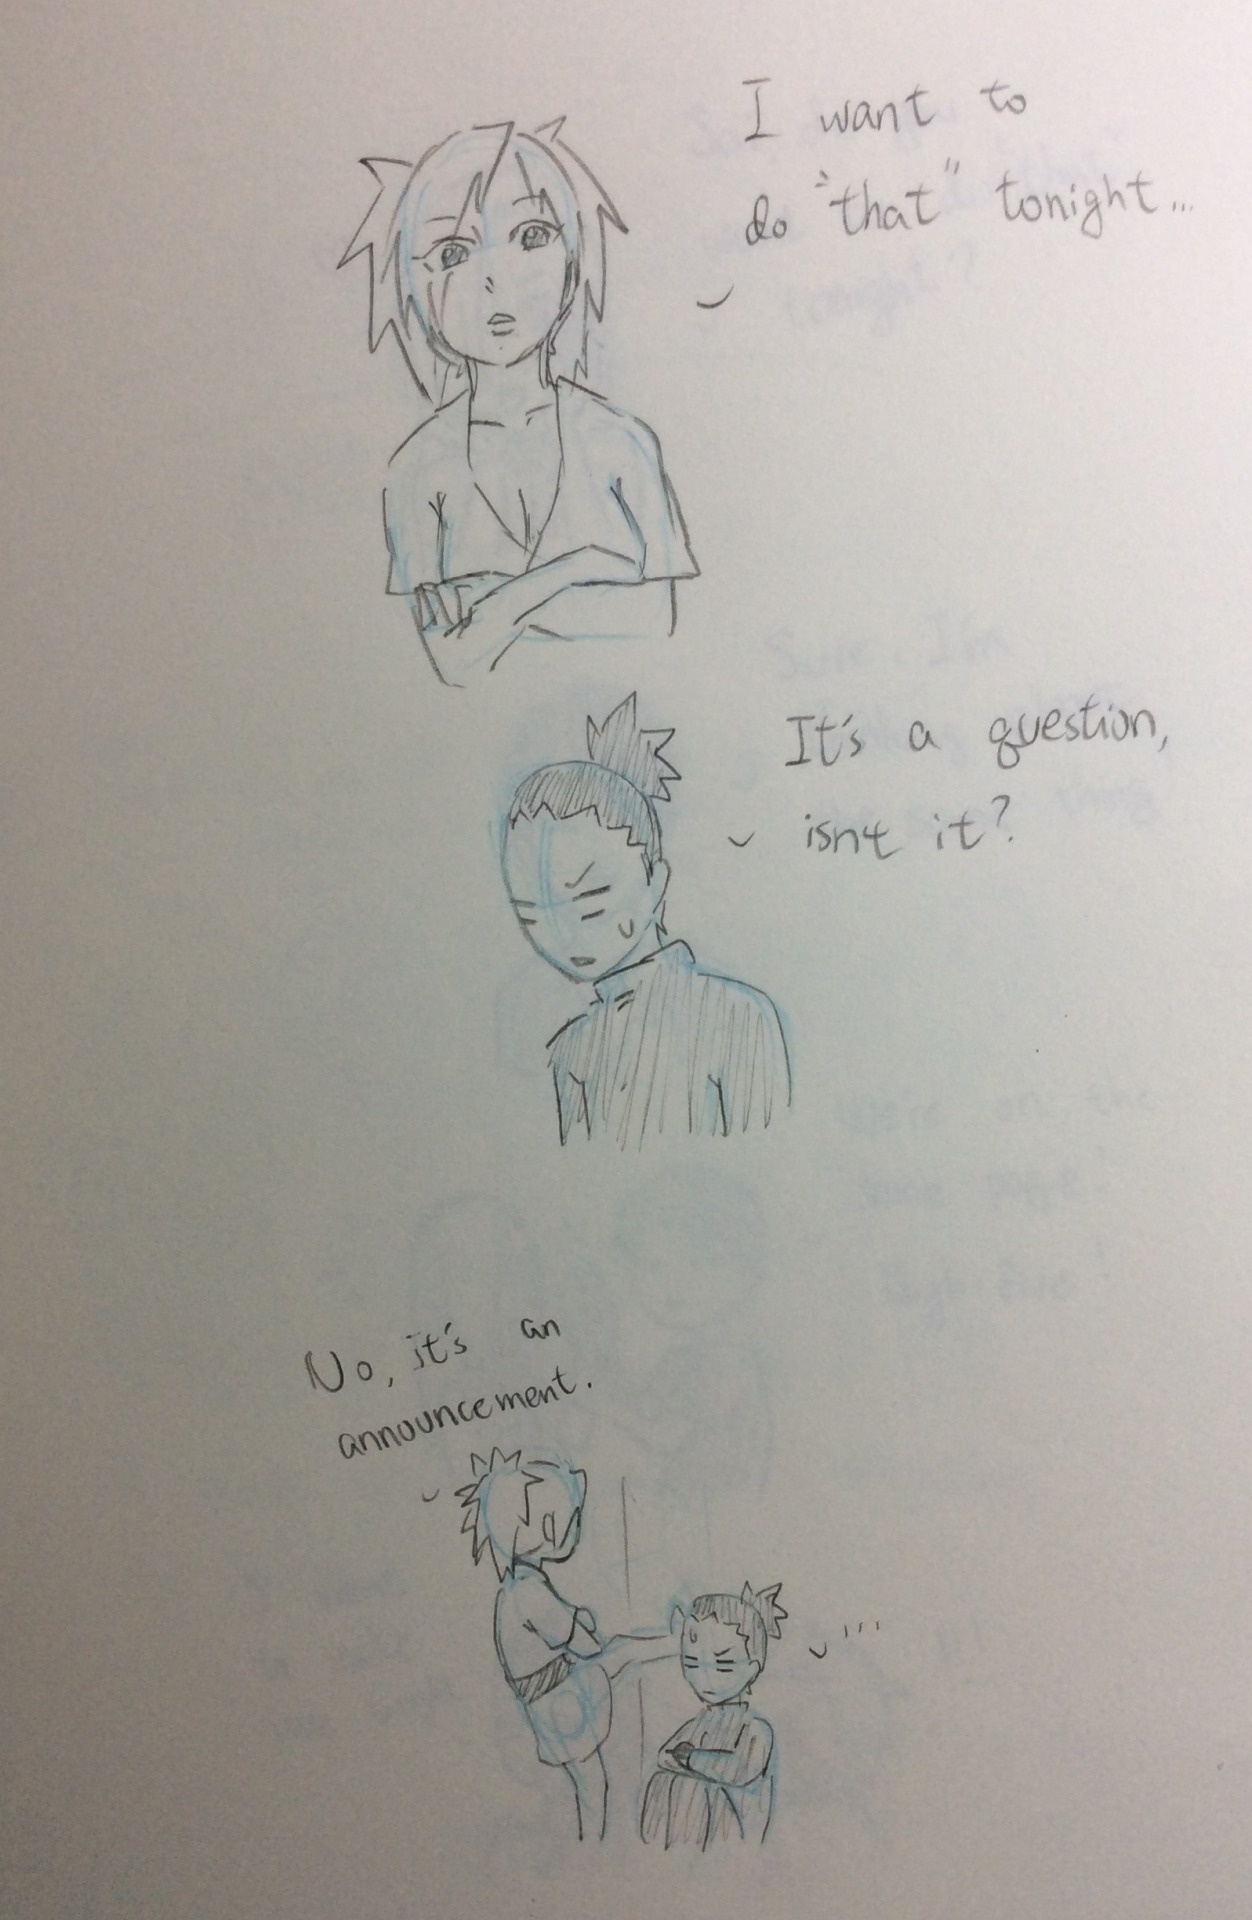 I want to
do "that" tonight...
It's a question,
isn't it?
No, it's an
announcement.
...